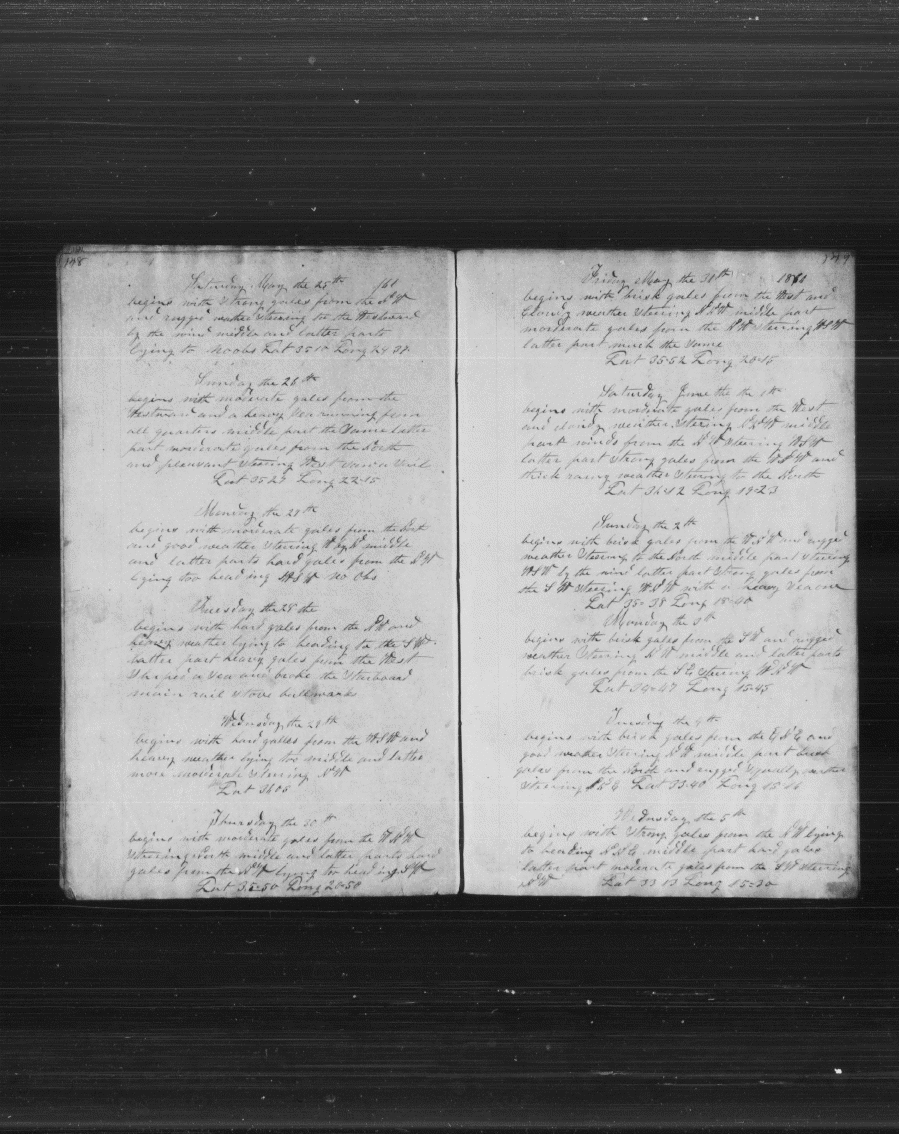 148
Saturday May the 25th 1861
begins with strong gales from the NW
and rugged weather steering to the Westward
by the wind middle and latter part
lying to No obs Lat 35 10 Long 24 38
Sunday the 26th
begins with moderate gales from the
Westward and a heavy sea running from
all quarters middle part the same latter
part moderate gales from the North
and pleasant steering West
Lat 35 27 Long 22-15
Monday the 27th
begins with moderate gales from the
and good weather steering W by N middle
and latter parts hard gales from the NW
lying too heading WSW No Obs
Tuesday the 28 the
begins with hard gales from the NW and
heavy weather lying to heading to the SW
latter part heavy gales from the West
Shiped a Sea and broke the Starboard
main rail stove bulwarks
Wednesday the 29th
begins with hard galles from the WSW and
heavey weather lying too middle and latter
more moderate steering NW
Lat 36 05
Thursday the 30th
begins with moderate gales from the WNW
steering North middle and latter parts hard
gales from the NW lying too heading SW
Lat 35-50 Long 20-50
149
Friday May the 31th 1861
begins with brisk gales from the West and
Cloudy weather steering NNW middle part
morderate gales from the NW steering WSW
latter part much the same
Lat 35-52 Long 20-15
Saturday June the the 1th
begins with moderate gales from the West
and cloudy weather steering NNW middle
parte winds from the NW steering WSW
latter part strong gales from the WSW and
thick rainy weather steering to the North
Lat 36 42 Long 19-23
Sunday the 2th
begins with brisk gales from the WSW and rugged
weather steering to the North middle part steering
WSW by the wind latter part strong gales from
the SW steering WNW with a heavy Sea on
Lat 35-38 Long 18-40
Monday the 3th
begins with brisk gales from the SW and rugged
weather steering NW middle and latter parts
brisk gales from the SE steering WNW
Lat 34-47 Long 15-45
Tuesday the 4th
begins with brisk gales from the ENE and
good weather steering NW middle part
gales from the North and rugged squally weather
steering Lat 33 40 Long 15
Wednesday the 5th
begins with strong gales from the NW lying
to heading NNE middle part hard gales
latter part moderate gales from the SW steering
NW Lat 33 13 Long 15=30